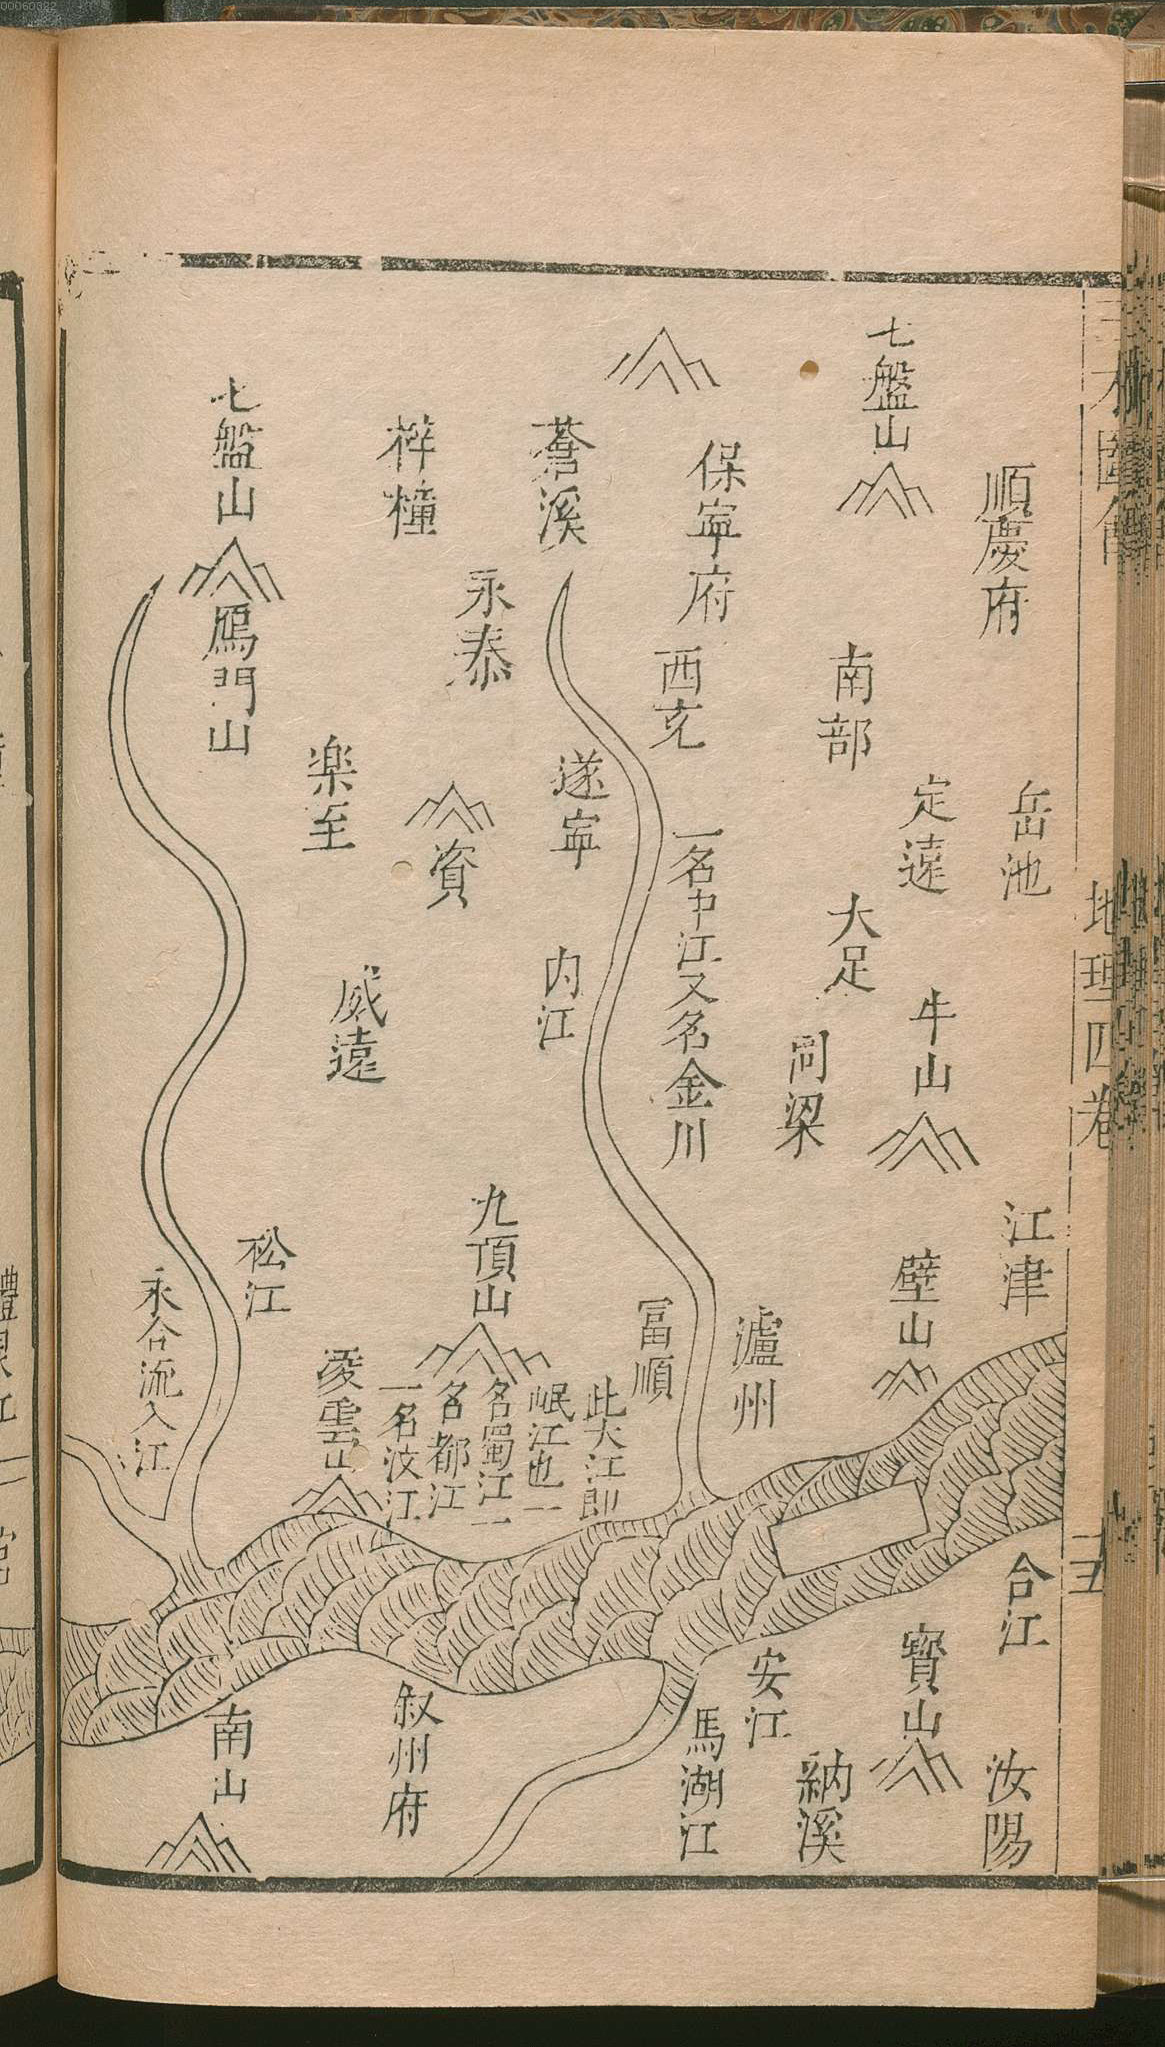 00060382
三才圖會
地理四卷
順慶府
岳池
江津
合江
汝陽
七盤山
定遠
牛山
壁山
寶山
南部
大足
同梁
納溪
保寧府
西充
一名中江又名金川
瀘州
安江
馬湖江
蒼溪
遂寧
内江
冨順
此大江即
岷江也一
名蜀江一
名都江
一名汶江
永泰
資
九頂山
梓橦
楽至
威遠
凌雲山
叙州府
七盤山
鴈門山
松江
永合流入江
南山